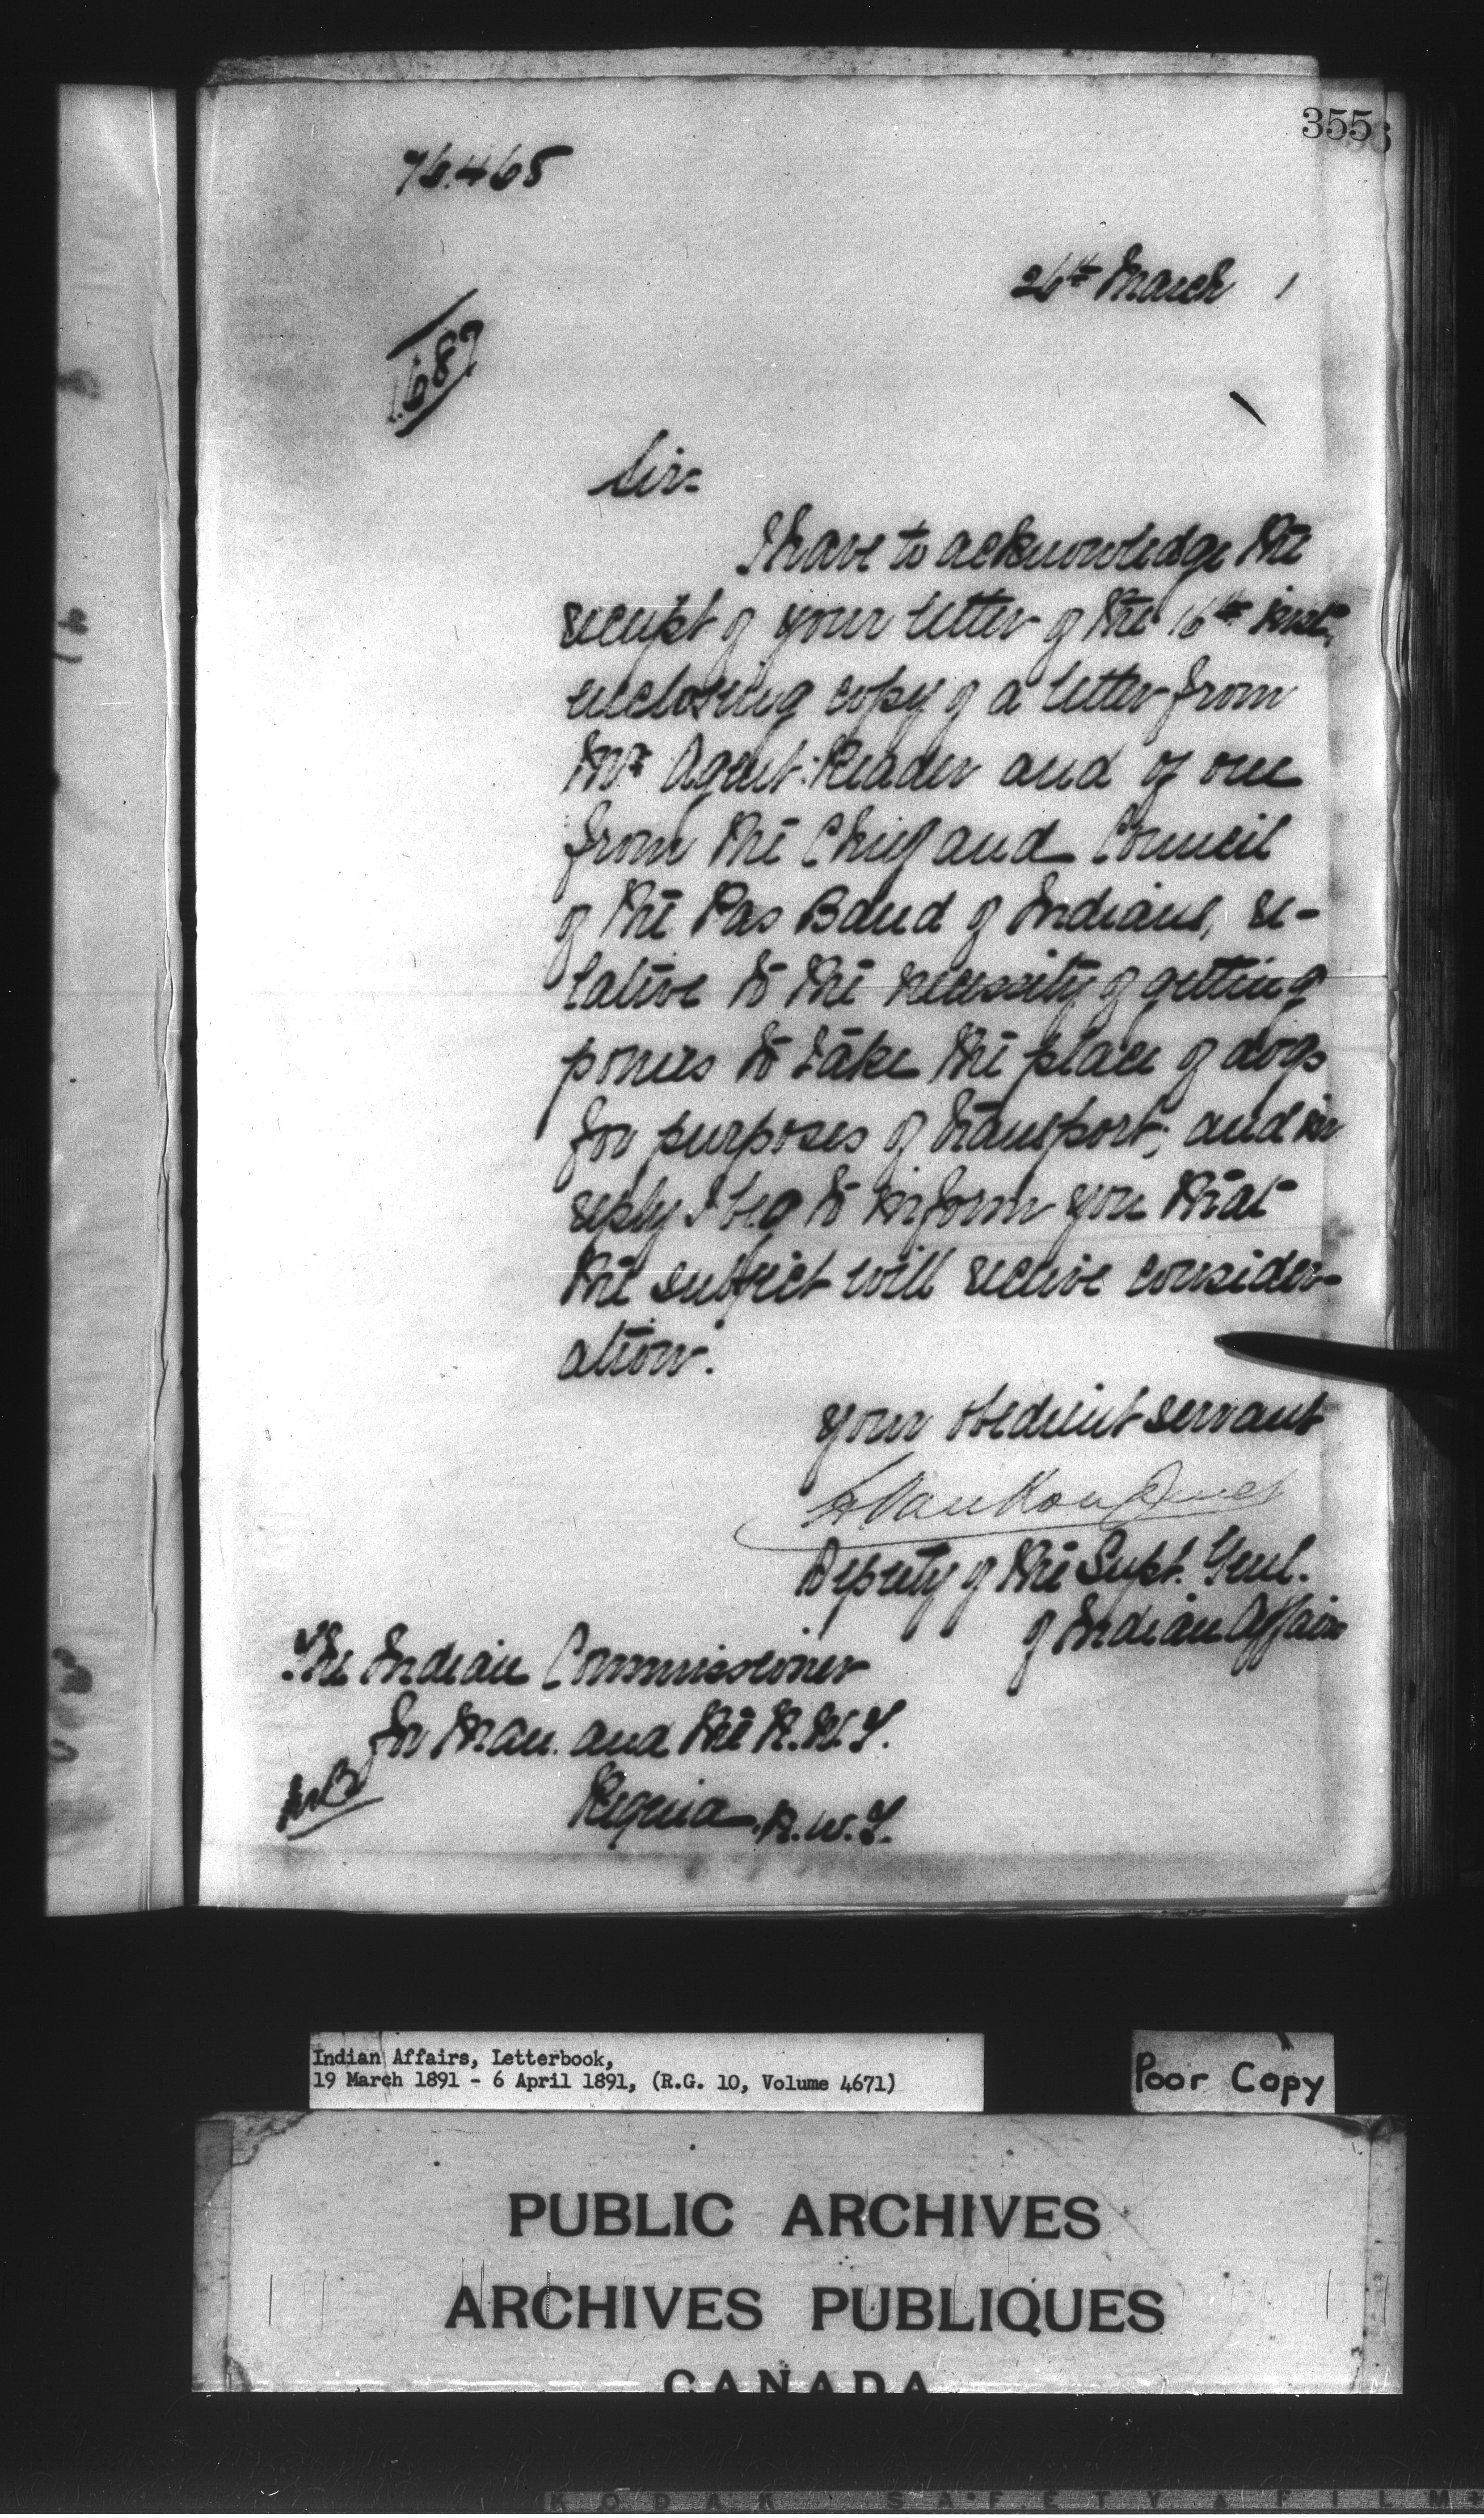 355
76.465
26th March 1
1687
Sir-
I have to acknowledge the
receipt of your letter of the 16th inst,
enclosing copy of a letter from
Mr. Agent Reader and of one
from the Chief and Council
of the Pas Band of Indians, re-
lative to the necessity of getting
ponies to take the place of dogs
for purposes of transport; and in
reply I beg to inform you that
the subject will receive consider-
ation.
your obedient servant
L Vankoughnet
Deputy of the Supt. Genl.
of Indian Affairs
The Indian Commissioner
for Man. and the N.W.T.
Regina. N.W.T.
Indian Affairs, Letterbook,
19 March 1891 - 6 April 1891, (R.G. 10, Volume 4671)
Poor Copy
PUBLIC ARCHIVES
ARCHIVES PUBLIQUES
CANADA
KODAK SAFETY FILM